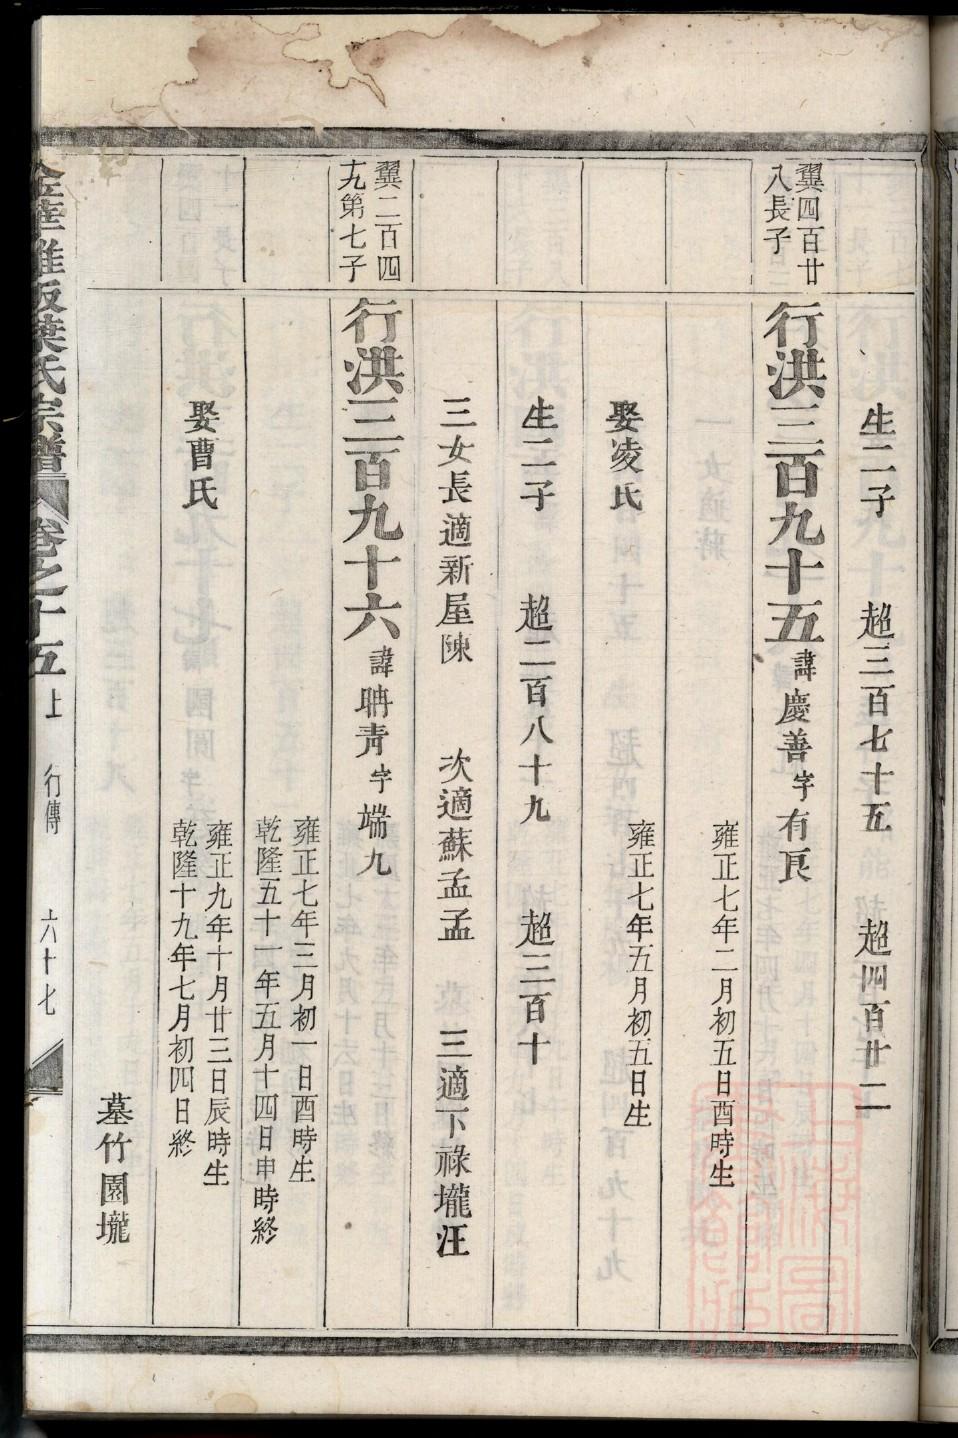 生二子　超三百七十五　超四百廿二
翼四百廿
八長子
行洪三百九十五　諱慶善　字有良
雍正七年二月初五日酉時生
娶凌氏
雍正七年五月初五日生
生二子　超二百八十九　超三百十
三女長適新屋陳　次適蘇孟孟　三適下祿壠汪
翼二百四
九第七子
行洪三百九十六　諱聃青　字端九
雍正七年三月初一日酉時生
乾隆五十一年五月十四日申時終
娶曹氏
雍正九年十月廿三日辰時生
乾隆十九年七月初四日終
墓竹園壠
金華雅畈葉氏宗譜　卷之十五上　行傳　六十七